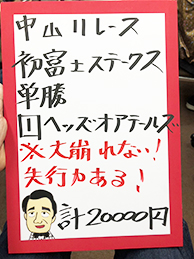 中山11レース
初富士ステークス
単勝
1ヘッズオアテールズ
※大崩れない!
先行力ある!
計20000円